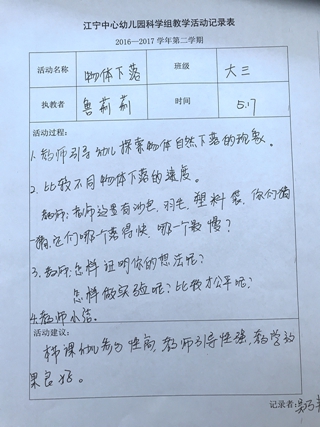 江宁中心幼儿园科学组教学活动记录表
2016—2017 学年第二学期
活动名称 物体下落 班级 大三
执教者 鲁莉莉 时间 5.17
活动过程：
1.教师引导幼儿探索物体自然下落的现象。
2.比较不同物体下落的速度。
教师：老师这里有沙包、羽毛、塑料袋，你们猜
一猜它们哪个落得快，哪一个最慢？
3.教师：怎样证明你的想法呢？
怎样做实验呢？比较才公平呢？
4.教师小结。
活动建议：
本节课幼儿参与性高，教师引导性强，教学效
果良好。
记录者：